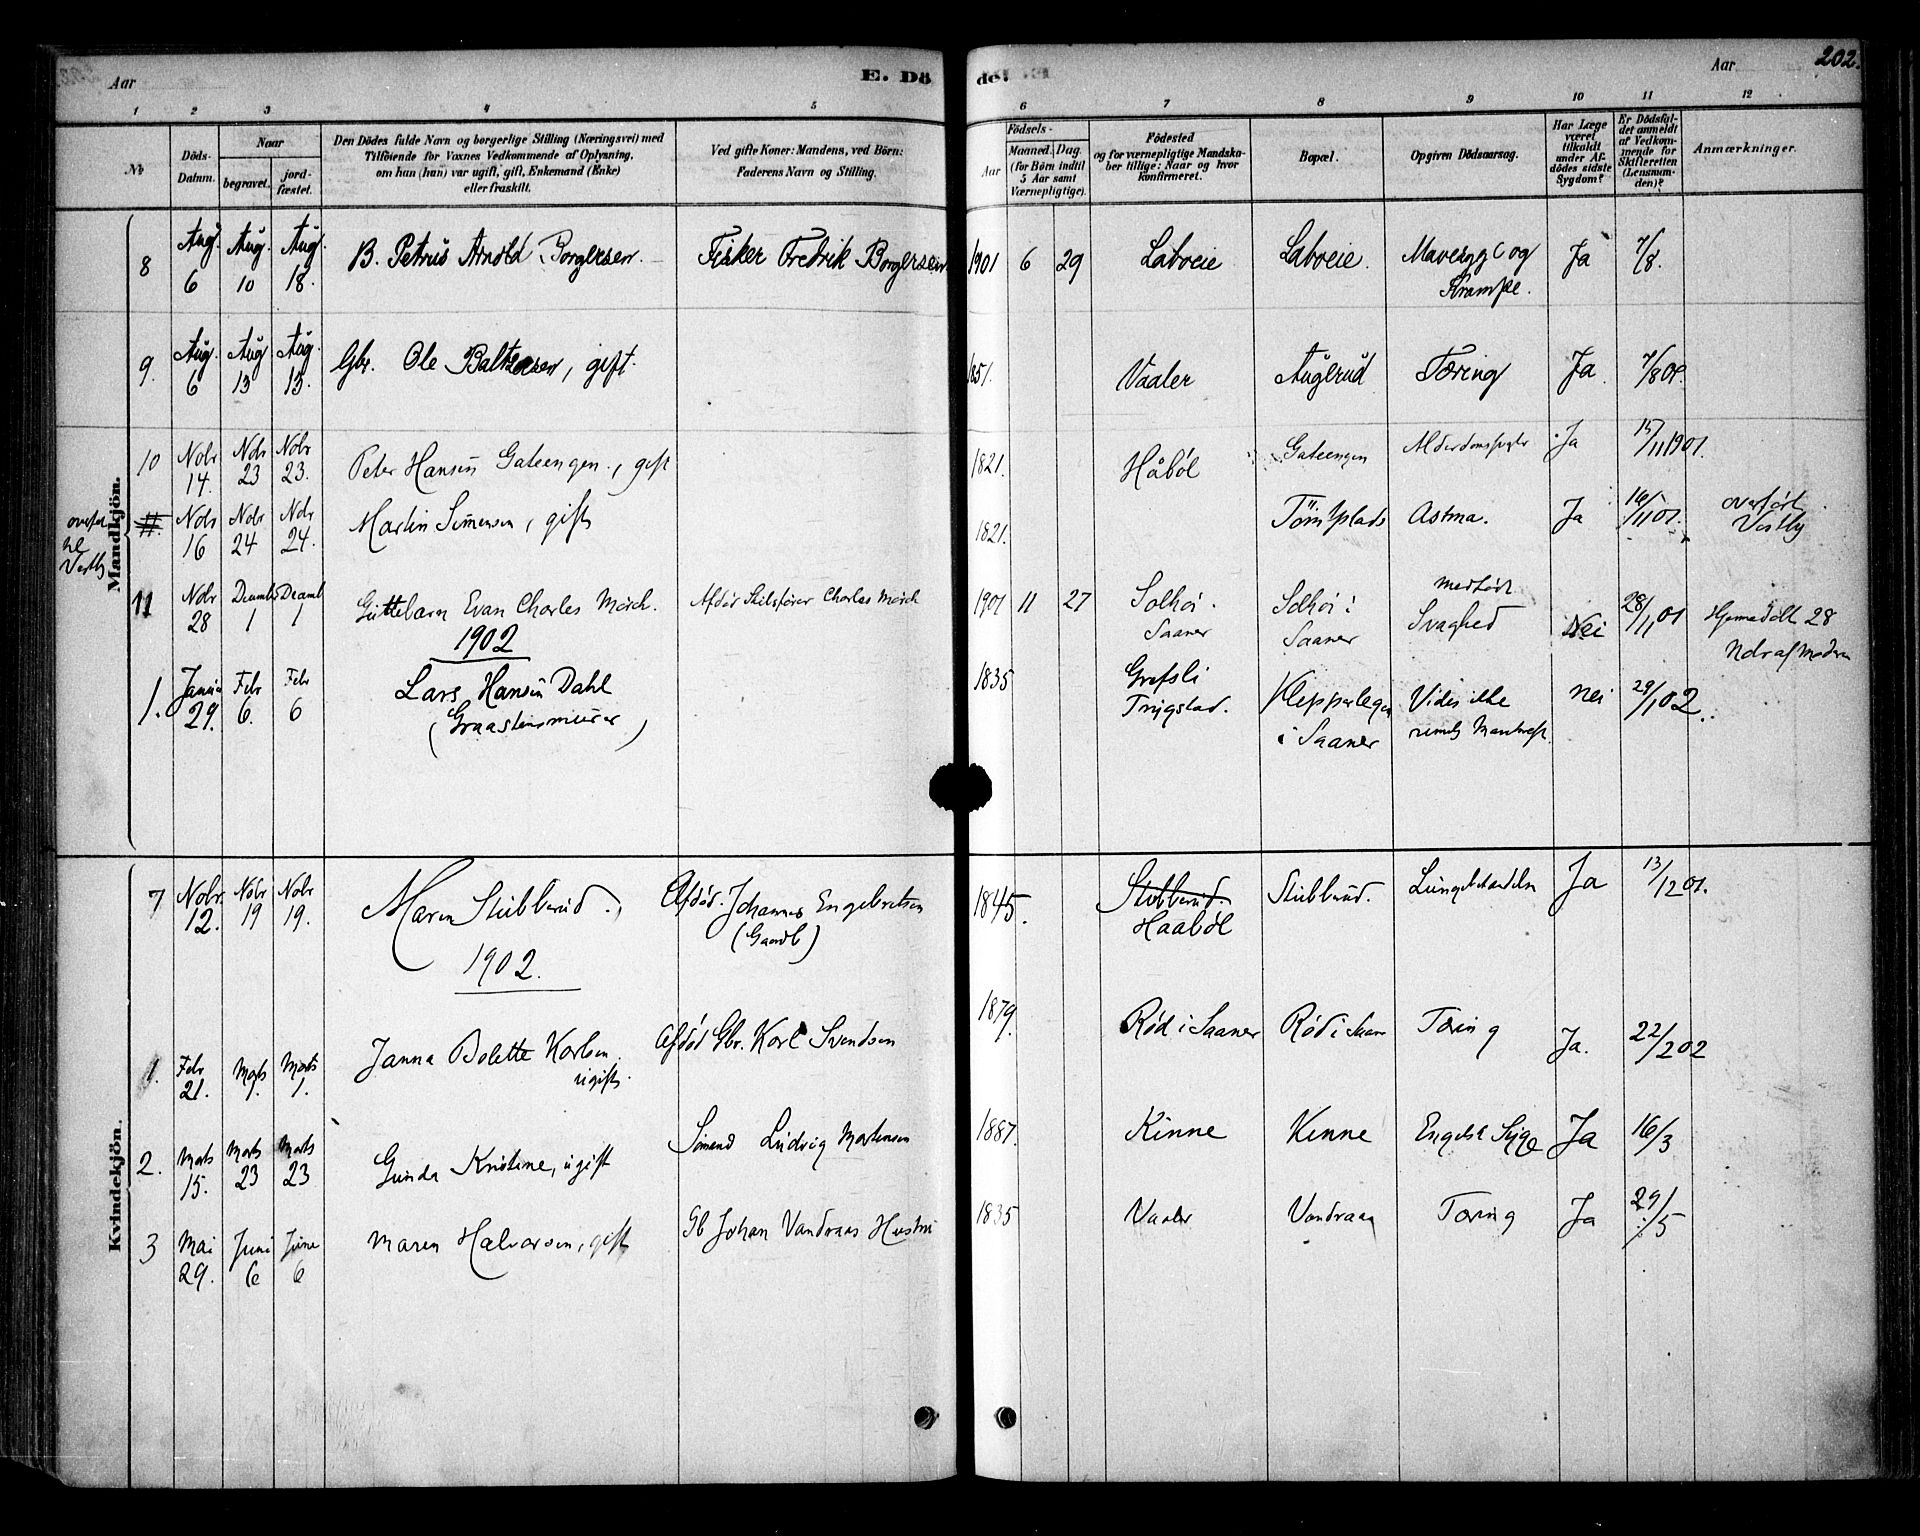 Aar
E. Dö
de.
Aar
202.
1 2 3 4 5 6 7 8 9 10 11 12
No
Döds-Datum.
Naar
begravet.
jord-fæstet.
Den Dödes fulde Navn og borgerlige Stilling (Næringsvei) med
Tilföiende for Voxnes Vedkommende af Oplysning,
om han (hun) var ugift, gift, Enkemand (Enke)
eller fraskilt.
Ved gifte Koner: Mandens, ved Börn:
Faderens Navn og Stilling.
Födsels-
Aar
Maaned. Dag.
(for Börn indtil
5 Aar samt
Værnepligtige).
Födested
og for værnepligtige Mandska-
ber tillige: Naar og hvor
konfirmeret.
Bopæl.
Opgiven Dödsaarsag.
Har Læge
været
tilkaldt
under Af-
dödes sidste
Sygdom?
Er Dödsfal-
det anmeldt
af Vedkom-
mende for
Skifteretten
(Lensman-
den)?
Anmærkninger.
Mandkjön.
8 Aug. 6 Aug. 10 Aug. 18. B. Petrus Arnold Borgersen. Fisker Fredrik Borgersen 1901 6 29 Laboeie Laboeie. Mavesyge og Krampe. Ja 7/8.
9. Aug. 6 Aug 13 Aug. 13. Gbr. Ole Baltzersen, gift. 1851. Vaaler Augerud Tæring Ja 7/8 01.
10 Nobr 14. Nobr 23 Nobr 23. Peter Hansen Gateengen, gift 1821. Håböl Gateengen Ja 15/11 1901.
Vestby
11. Nobr 16 Nobr 24 Nobr 24. Martin Simensen, gift 1821. Astma. Ja 16/11 01. overført Vestby
11 Nobr 28 Decemb 1 Decemb 1 Guttebarn Evan Charles Mörch. Afdød Skibsfører Charles Mörch 1901 11 27 Solhöi. Saaner Solhöi i Saaner medfødt Svaghed Nei 28/11 01 Hjemmedöbt 28 Nobr af Moderen
1902
1. Januar 29. Febr 6. Febr 6 Lars Hansen Dahl (Graastensmurer) 1835 Grefsli Trygstad. Klepperlegen i Saaner Vides ikke nei 29/1 02.
Kvindekjön.
7 Nobr. 12. Nobr 19 Nobr 19. Maren Stubberud. Afdöd. Johannes Engebretsen (Gaardb) 1845. Stubberud. Haaböl Stubberud. Lungebetændelse Ja 13/12 01.
1902.
1. Febr 21. Marts 1. Marts 1. Janna Bolette Karlsen. ugift. Afdöd Gbr. Karl Svendsen 1879. Röd i Saaner Röd i Saan Tæring Ja. 22/2 02
2. Marts 15. Marts 23 Marts 23 Gunda Kristine, ugift Sömand Ludvig Martensen 1887. Kinne Kinne Engelsk Syge Ja 16/3
3 Mai 29. Juni 6 June 6 Maren Halvorsen, gift Gb Johan Vandraas Hustru 1835 Vaaler Vandraag Tæring Ja 29/5